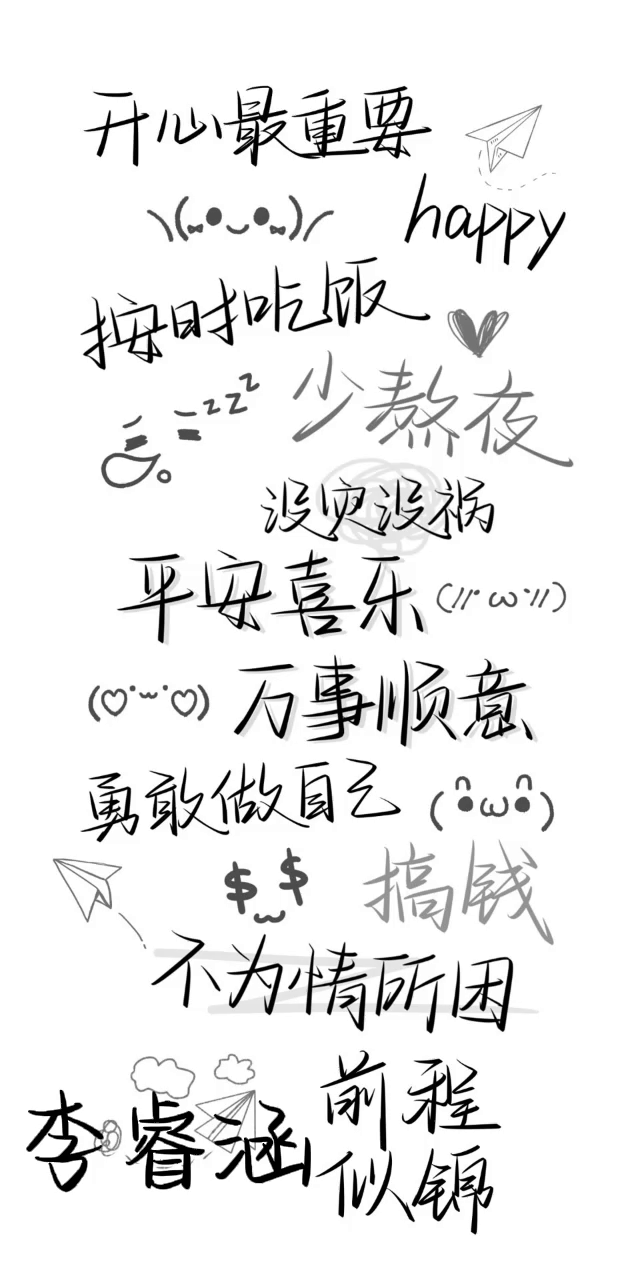 开心最重要
happy
按时吃饭
zzz
少熬夜
没灾没祸
平安喜乐
(//· ω ·//)
万事顺意
勇敢做自己
$ $
搞钱
不为情所困
李睿涵
前程
似锦